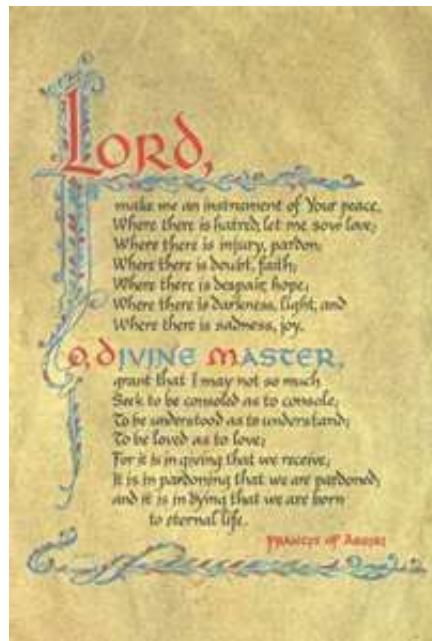 LORD,
make me an instrument of Your peace,
Where there is hatred, let me sow love;
Where there is injury, pardon;
Where there is doubt, faith;
Where there is despair, hope;
Where there is darkness, light, and
Where there is sadness, joy.
O, DIVINE MASTER,
grant that I may not so much
Seek to be consoled as to console;
To be understood as to understand;
To be loved as to love;
For it is in giving that we receive;
It is in pardoning that we are pardoned;
and it is in dying that we are born
to eternal life.
FRANCIS OF ASSISI